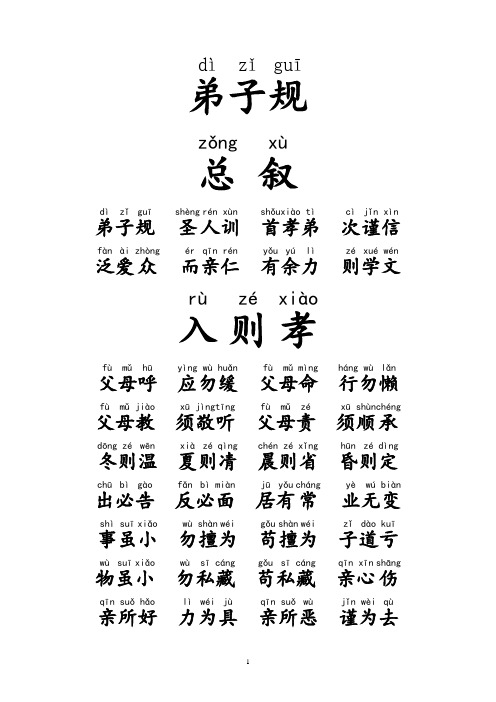 dì zǐ guī
弟子规
zǒng xù
总 叙
dì zǐ guī shèng rén xùn shǒuxiào tì cì jǐn xìn
弟子规 圣人训 首孝弟 次谨信
fàn ài zhòng ér qīn rén yǒu yú lì zé xué wén
泛爱众 而亲仁 有余力 则学文
rù zé xiào
入则孝
fù mǔ hū yìng wù huǎn fù mǔ mìng háng wù lǎn
父母呼 应勿缓 父母命 行勿懒
fù mǔ jiào xū jìngtīng fù mǔ zé xū shùnchéng
父母教 须敬听 父母责 须顺承
dōng zé wēn xià zé qìng chén zé xǐng hūn zé dìng
冬则温 夏则凊 晨则省 昏则定
chū bì gào fǎn bì miàn jū yǒu cháng yè wú biàn
出必告 反必面 居有常 业无变
shì suī xiǎo wù shàn wéi gǒu shàn wéi zǐ dào kuī
事虽小 勿擅为 苟擅为 子道亏
wù suī xiǎo wù sī cáng gǒu sī cáng qīn xīn shāng
物虽小 勿私藏 苟私藏 亲心伤
qīn suǒ hǎo lì wéi jù qīn suǒ wù jǐn wèi qù
亲所好 力为具 亲所恶 谨为去
1